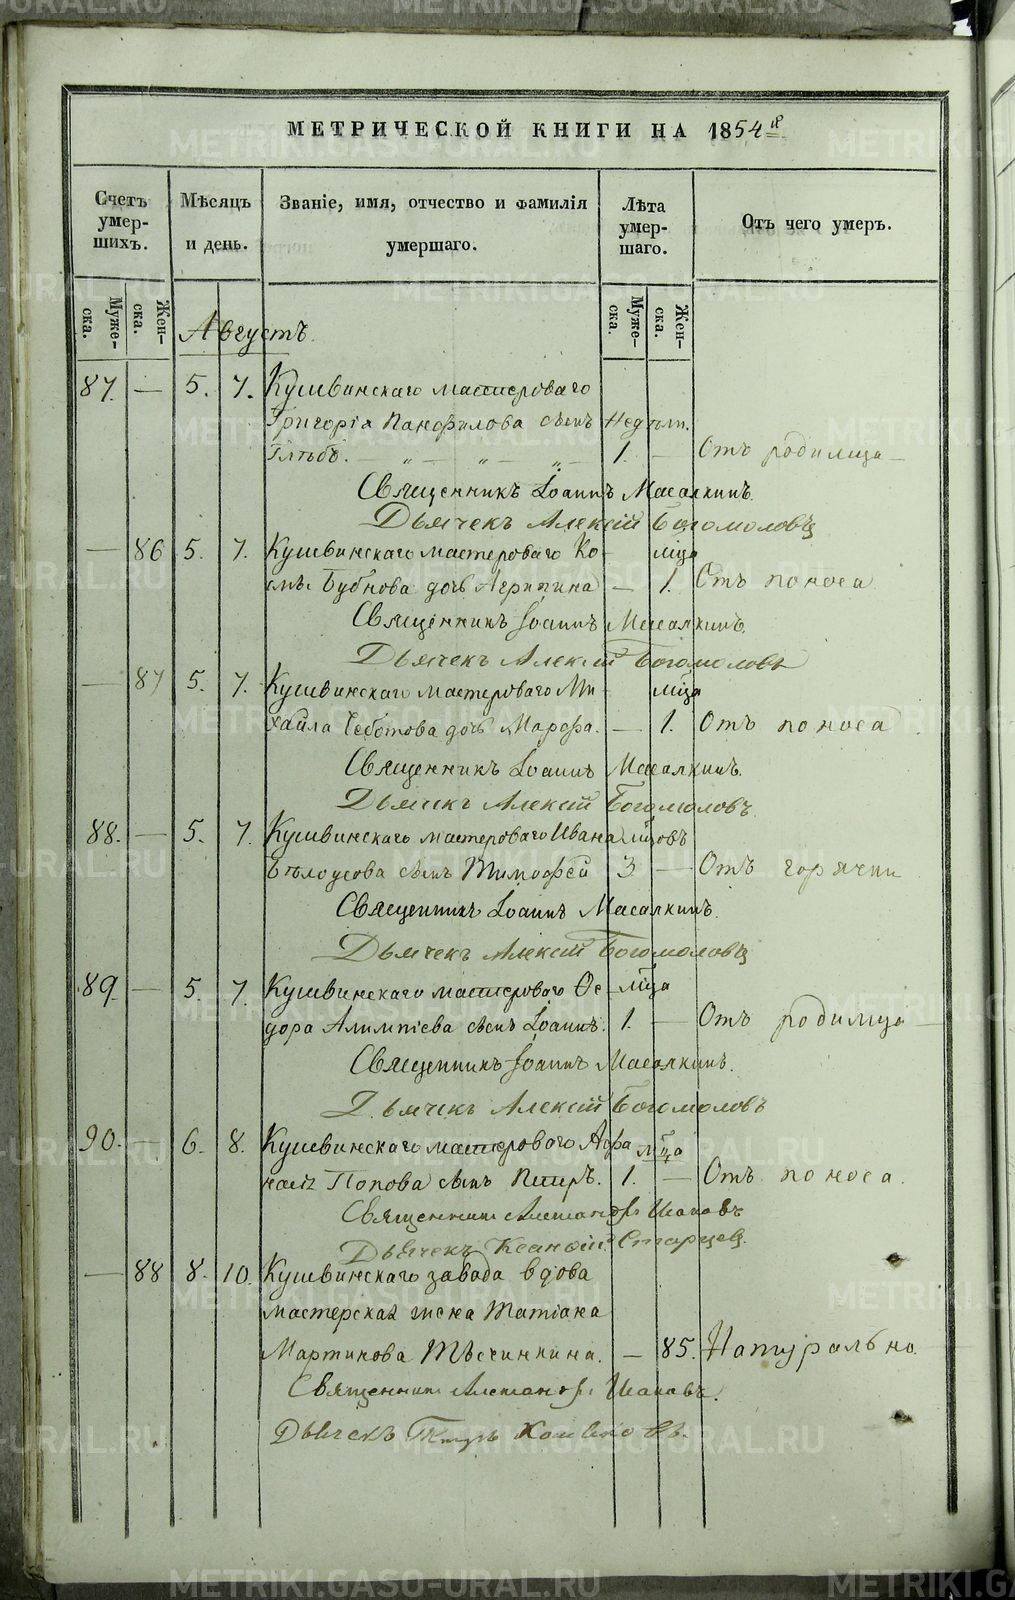 МЕТРИЧЕСКОЙ КНИГИ НА 1854й
Счетъ умер-шихъ. Мѣсяцъ и день. Званіе, имя, отчество и фамилія умершаго. Лѣта умер-шаго. Отъ чего умеръ.
Муже-ска. Жен-ска. Муже-ска. Жен-ска.
Августъ.
87. — 5. 7. Кушвинскаго мастероваго
Григорія Панфилова сынъ Недѣли.
Глѣбъ. — „ — „ — „ — 1. — Отъ родимца —
Священникъ Іоаннъ Масалкинъ.
Дьячекъ Алексій Богомоловъ
— 86 5. 7. Кушвинскаго мастероваго Ко- мца
смы Бубнова дочь Агрипина — 1. Отъ поноса
Священникъ Іоаннъ Масалкинъ.
Дьячекъ Алексій Богомоловъ
— 87 5. 7. Кушвинскаго мастероваго Ми- мца
хаила Чеботова дочь Марфа. — 1. Отъ поноса
Священникъ Іоаннъ Масалкинъ.
Дьячекъ Алексій Богомоловъ.
88. — 5. 7. Кушвинскаго мастероваго Ивана мцовъ
Бѣлоусова сынъ Тимофей 3 — Отъ горячки
Священникъ Іоаннъ Масалкинъ.
Дьячекъ Алексій Богомоловъ
89. — 5. 7. Кушвинскаго мастероваго Ѳе- мца
дора Алимпіева сынъ Іоаннъ. 1. — Отъ родимца —
Священникъ Іоаннъ Масалкинъ.
Дьячекъ Алексій Богомоловъ
90. — 6. 8. Кушвинскаго мастероваго Афа мца
насія Попова сынъ Петръ. 1. — Отъ поноса.
Священникъ Александръ
Дьячекъ Старцевъ.
— 88 8. 10. Кушвинскаго завода вдова
мастерская жена Татіана
Мартинова — 85. Натурально
Священникъ Александръ
Дьячекъ Петръ
METRIKI.GASO-URAL.RU